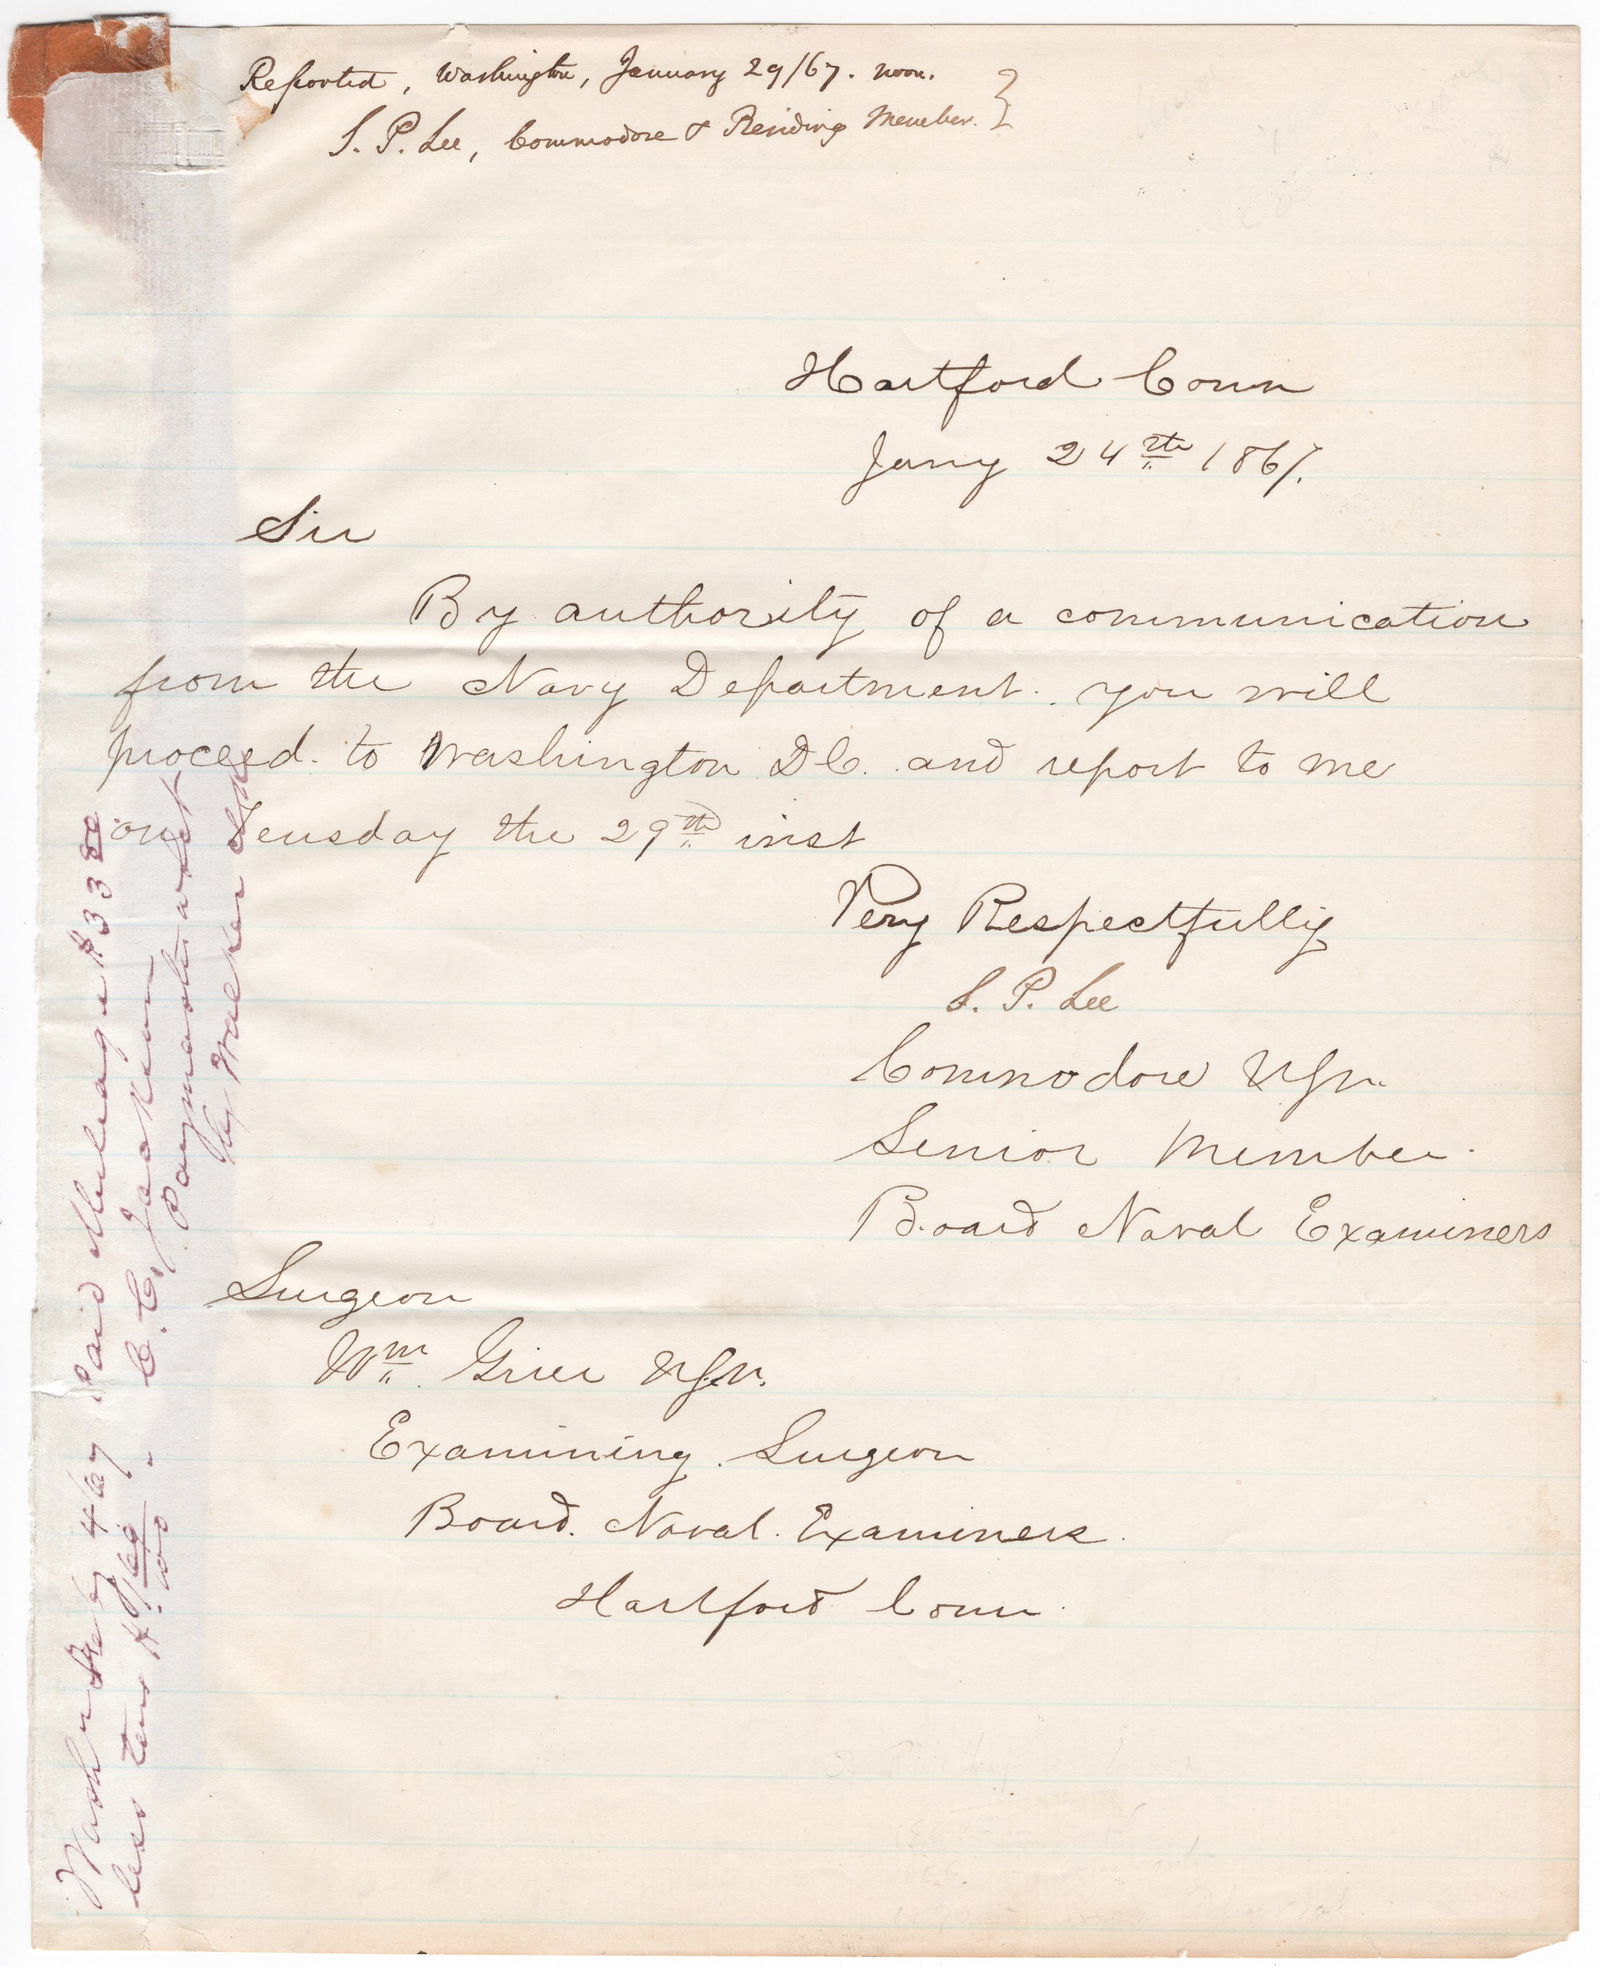 Reported, Washington, January 29/67. noon.
S. P. Lee, Commodore & Presiding Member.
Hartford Conn
Jany 24th 1867.
Sir
By authority of a communication
from the Navy Department. you will
proceed. to Washington D.C. and report to me
on Teusday the 29th inst
Very Respectfully
S. P. Lee
Commodore USN.
Senior Member.
Board Naval Examiners
Surgeon
Wm. Grier USN.
Examining Surgeon
Board. Naval. Examiners.
Hartford Conn.
Washn Feby 4/67 Paid Mileage $33 00
less tax
C. C. Jackson
Paymaster
by